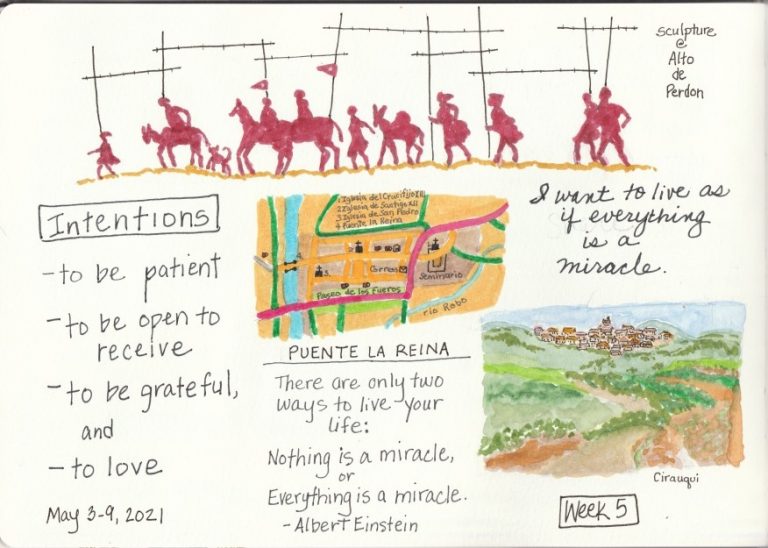 sculpture
@
Alto
de
Perdon
Intentions
- to be patient
- to be open to
receive
- to be grateful,
and
- to love
May 3-9, 2021
1 Iglesia del Crucifijo XII
2 Iglesia de Santiago XII
3 Iglesia de San Pedro
4 Puente la Reina
Correos
Seminario
Paseo de los Fueros
rio Robo
PUENTE LA REINA
There are only two
ways to live your
life:
Nothing is a miracle,
or
Everything is a miracle.
- Albert Einstein
I want to live as
if everything
is a
miracle.
Cirauqui
Week 5